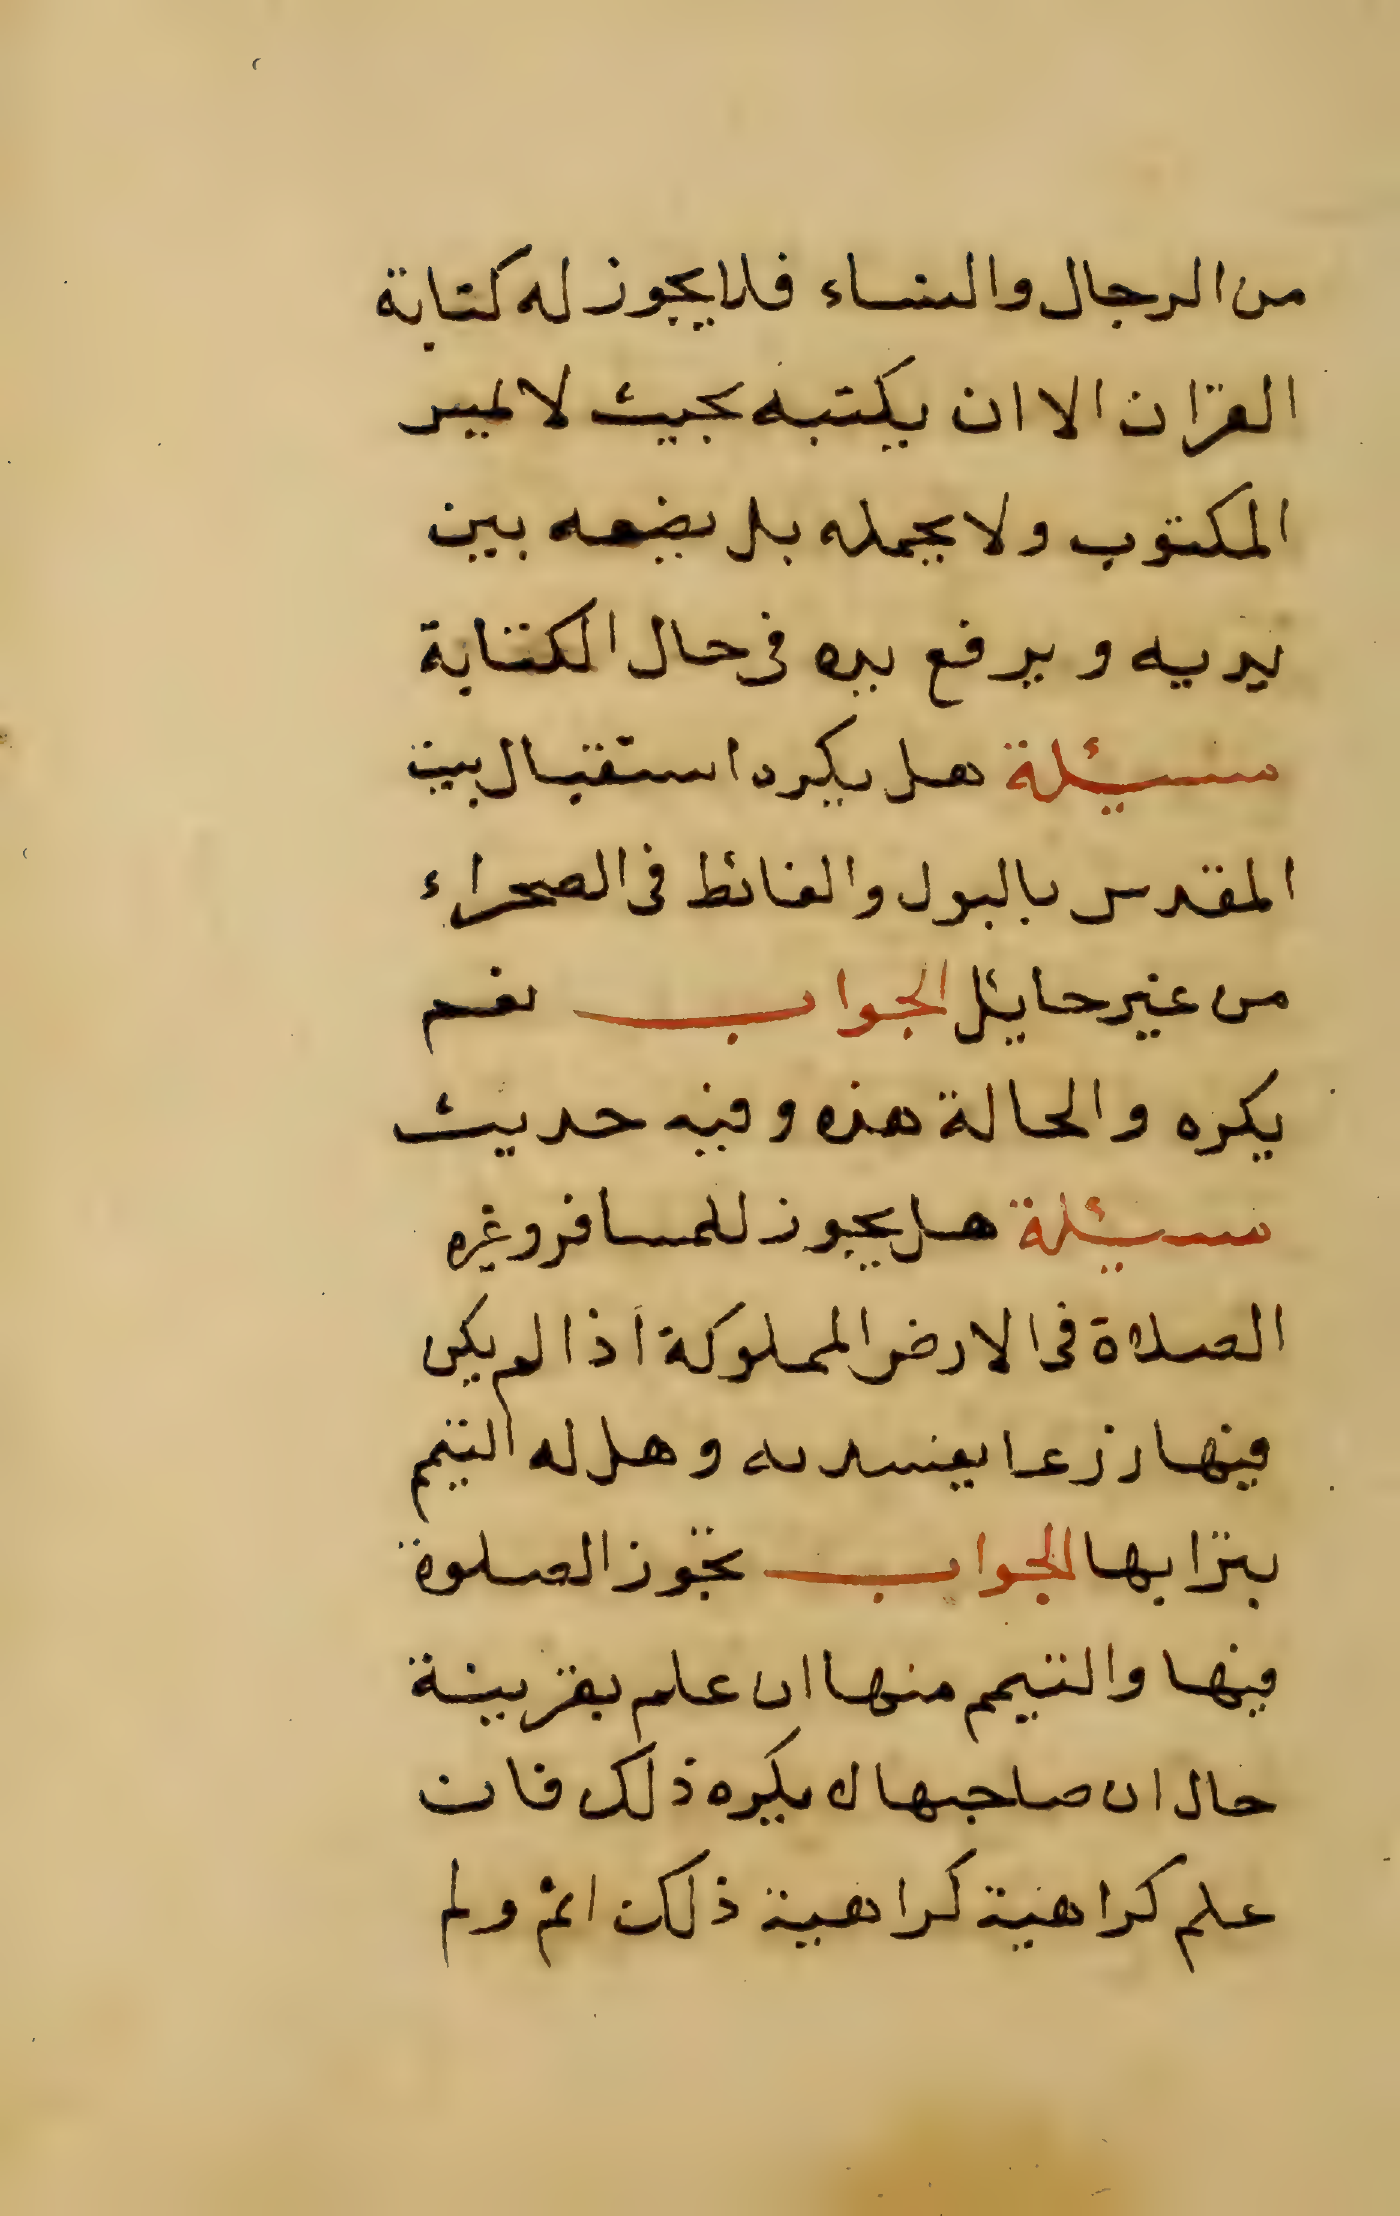 من الرجال والنساء فلا يجوز له كتابة
القرآن الا ان يكتبه بحيث لا يمس
المكتوب ولا يحمله بل يضعه بين
يديه ويرفع يده في حال الكتابة
مسئلة هل يكره استقبال بيت
المقدس بالبول والغائط في الصحراء
من غير حايل الجواب نعم
يكره والحالة هذه وفيه حديث
مسئلة هل يجوز للمسافر وغيره
الصلاة في الارض المملوكة اذا لم يكن
فيها زرعا يفسد به وهل له التيمم
بترابها الجواب تجوز الصلوة
فيها والتيمم منها ان علم بقرينة
حال ان صاحبها لا يكره ذلك فان
علم كراهية كراهية ذلك اثم ولم